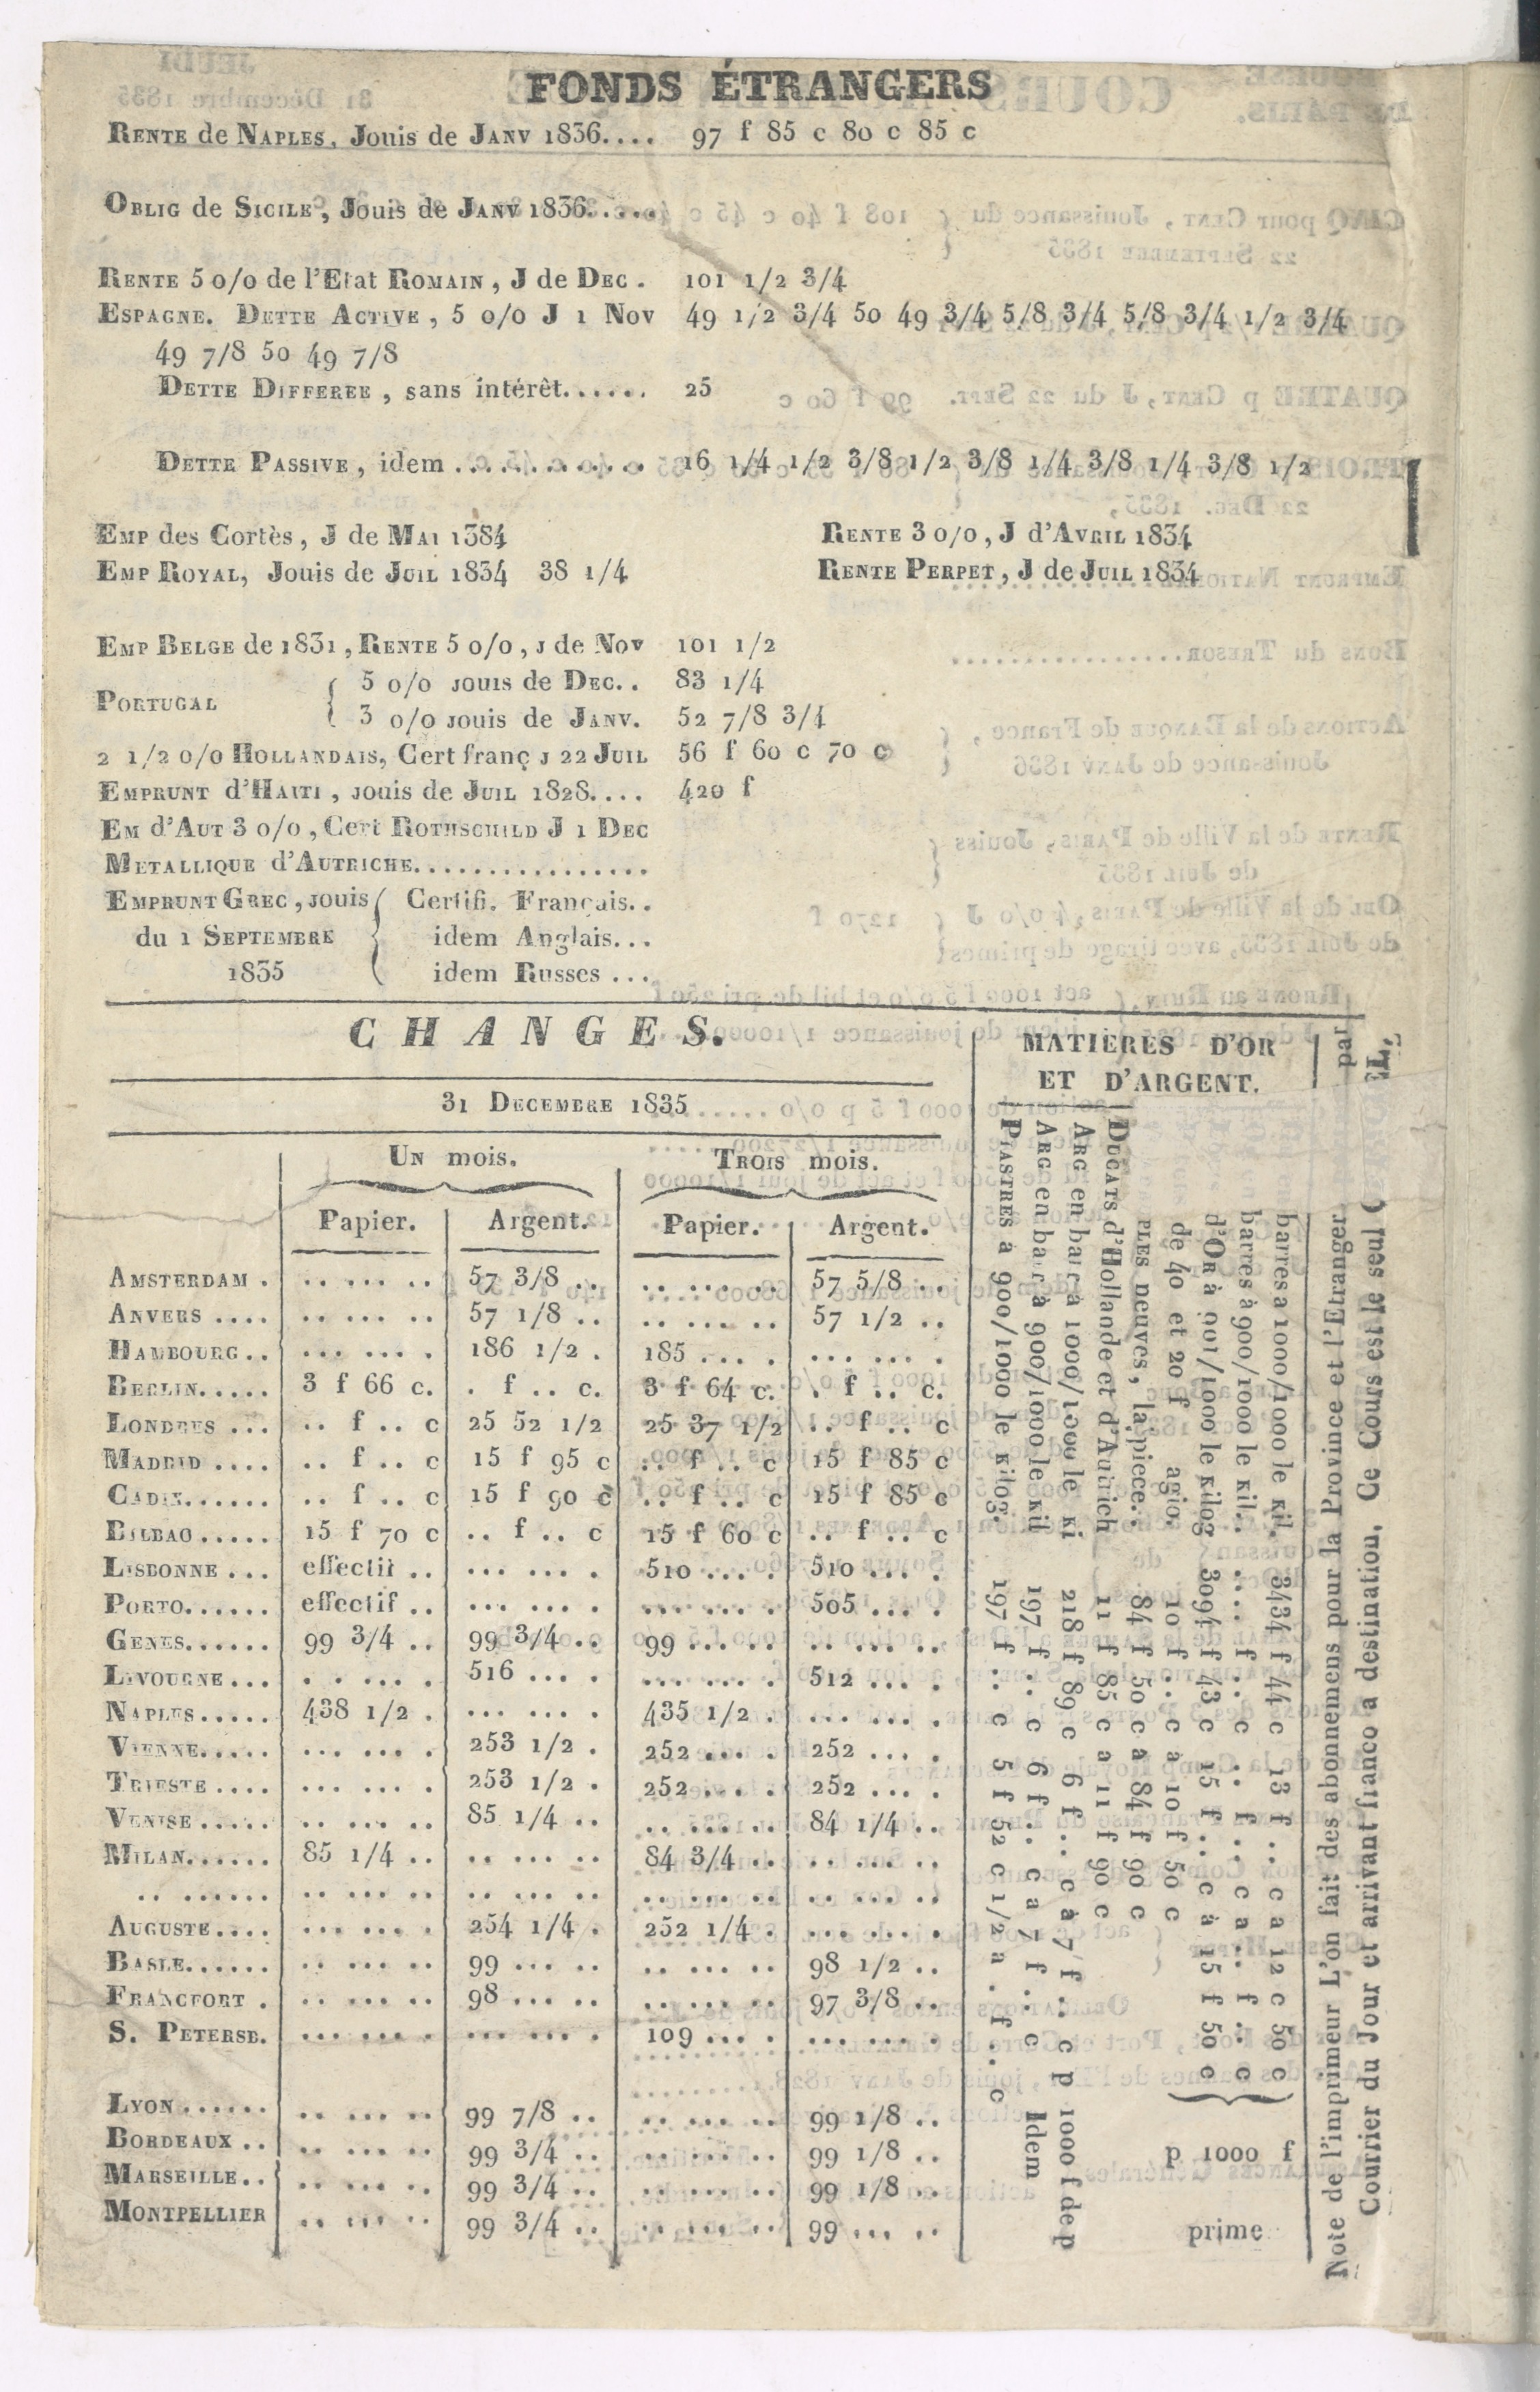 FONDS ÉTRANGERS
RENTE de NAPLES, Jouis de JANV 1836.... 97 f 85 c 80 c 85 c
OBLIG de SICILE, Jouis de JANV 1836.....
RENTE 5 o/o de l'Etat ROMAIN, J de DEC. 101 1/2 3/4
ESPAGNE. DETTE ACTIVE, 5 o/o J 1 Nov 49 1/2 3/4 50 49 3/4 5/8 3/4 5/8 3/4 1/2 3/4
49 7/8 50 49 7/8
DETTE DIFFEREE, sans intérêt...... 25
DETTE PASSIVE, idem ............ 16 1/4 1/2 3/8 1/2 3/8 1/4 3/8 1/4 3/8 1/2
EMP des Cortès, J de MAI 1384 RENTE 3 o/o, J d'AVRIL 1834
EMP ROYAL, Jouis de JUIL 1834 38 1/4 RENTE PERPET, J de JUIL 1834
EMP BELGE de 1831, RENTE 5 o/o, J de Nov 101 1/2
PORTUGAL { 5 o/o jouis de DEC.. 83 1/4
3 o/o jouis de JANV. 52 7/8 3/4
2 1/2 o/o HOLLANDAIS, Cert franç J 22 JUIL 56 f 60 c 70 c
EMPRUNT d'HAITI, jouis de JUIL 1828.... 420 f
EM d'AUT 3 o/o, Cert ROTHSCHILD J 1 DEC
METALLIQUE d'AUTRICHE................
EMPRUNT GREC, jouis { Certifi. Français..
du 1 SEPTEMBRE idem Anglais...
1835 idem Russes ...
CHANGES.
31 DECEMBRE 1835
UN mois. TROIS mois.
Papier. Argent. Papier. Argent.
AMSTERDAM . .. ... .. 57 3/8 .. .. ... .. 57 5/8 ..
ANVERS .... .. ... .. 57 1/8 .. .. ... .. 57 1/2 ..
HAMBOURG.. ... ... . 186 1/2 . 185 ... . ... ... .
BERLIN..... 3 f 66 c. . f .. c. 3 f 64 c. . f .. c.
LONDRES ... .. f .. c 25 52 1/2 25 37 1/2 .. f .. c
MADRID .... .. f .. c 15 f 95 c .. f .. c 15 f 85 c
CADIX...... .. f .. c 15 f 90 c .. f .. c 15 f 85 c
BILBAO ..... 15 f 70 c .. f .. c 15 f 60 c .. f .. c
LISBONNE ... effectif .. ... ... . 510 ... . 510 ... .
PORTO...... effectif .. ... ... . ... ... . 505 ... .
GENES...... 99 3/4 .. 99 3/4 .. 99 ... .. .. ... ..
LIVOURNE ... . . ... . 516 ... . ... ... . 512 ... .
NAPLES..... 438 1/2 . ... ... . 435 1/2 . ... ... .
VIENNE..... ... ... . 253 1/2 . 252 ... . 252 ... .
TRIESTE .... ... ... . 253 1/2 . 252 ... . 252 ... .
VENISE ..... .. ... .. 85 1/4 .. .. ... .. 84 1/4 ..
MILAN...... 85 1/4 .. .. ... .. 84 3/4 .. .. ... ..
.. ...... .. ... .. .. ... .. .. ... .. .. ... ..
AUGUSTE.... ... ... . 254 1/4 . 252 1/4 . ... ... .
BASLE...... .. ... .. 99 ... .. .. ... .. 98 1/2 ..
FRANCFORT . .. ... .. 98 ... .. .. ... .. 97 3/8 ..
S. PETERSB. ... ... . ... ... . 109 ... . ... ... .
LYON ...... .. ... .. 99 7/8 .. .. ... .. 99 1/8 ..
BORDEAUX .. .. ... .. 99 3/4 .. .. ... .. 99 1/8 ..
MARSEILLE.. .. ... .. 99 3/4 .. .. ... .. 99 1/8 ..
MONTPELLIER .. ... .. 99 3/4 .. .. ... .. 99 ... ..
MATIERES D'OR
ET D'ARGENT.
barres a 1000/1000 le kil. 3434 f 44 c 13 f .. c a 12 c 50 c
barres à 900/1000 le kil.. .... f .. c .. f .. c a .. f .. c
d'OR à 901/1000 le kilog 3094 f 43 c 15 f .. c à 15 f 50 c
p 1000 f
prime
de 40 et 20 f agio. 10 f .. c a 10 f 50 c
PLES neuves, la piece.. 84 f 50 c a 84 f 90 c
DUCATS d'Hollande et d'Autrich 11 f 85 c a 11 f 90 c
ARG en bar à 1000/1000 le ki 218 f 89 c 6 f .. c à 7 f .. c p 1000 f de p
ARG en bar à 900/1000 le kil 197 f .. c 6 f .. c a 7 f .. c Idem
PIASTRES à 900/1000 le kilog. 197 f .. c 5 f 52 c 1/2 a . f .. c
Note de l'imprimeur L'on fait des abonnemens pour la Province et l'Etranger par
Courrier du Jour et arrivant franco a destination, Ce Cours est le seul